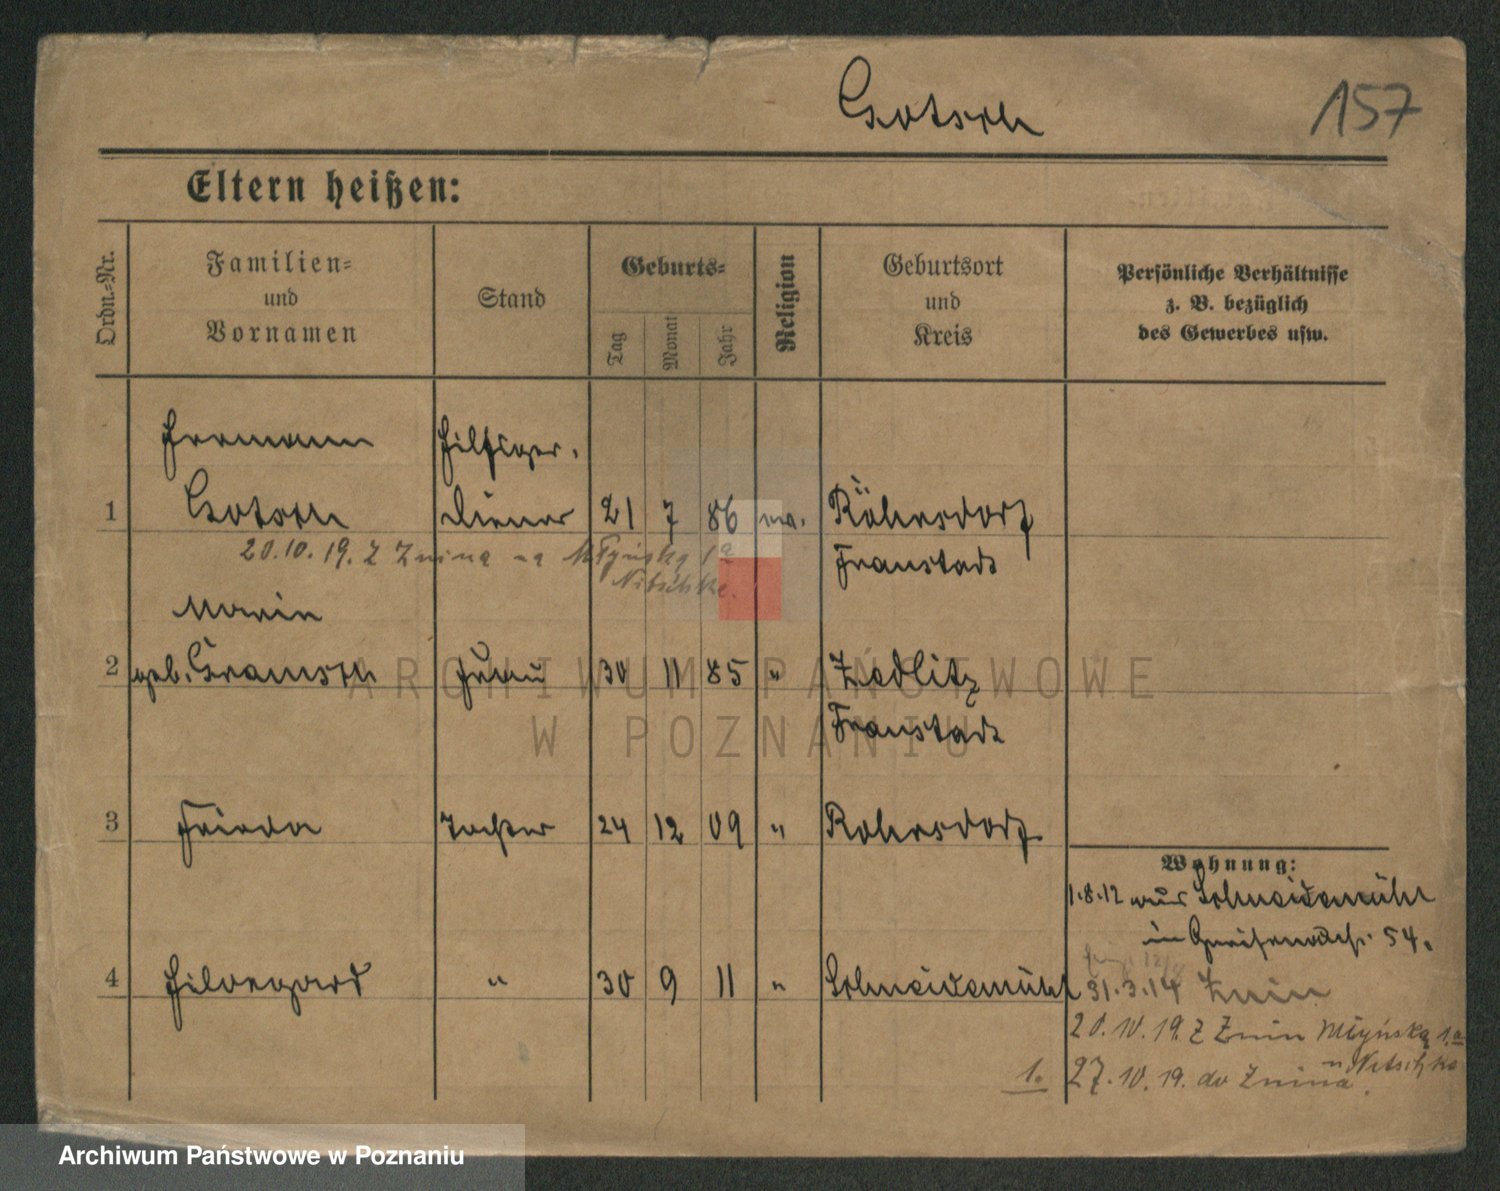 Gotsch
157
Eltern heißen:
Ordn.-Nr.
Familien-
und
Vornamen
Stand
Geburts-
Tag
Monat
Jahr
Religion
Geburtsort
und
Kreis
Persönliche Verhältnisse
z. B. bezüglich
des Gewerbes usw.
Hermann
Gotsch
1
diener
21 7 86
Röhrsdorf
Fraustadt
20.10.19. z Znina na Młyńską 1a
Nitschke.
Marie
2 geb. Gramsch Frau 30 11 85 " Zedlitz
Fraustadt
3 Frieda Tochter 24 12 09 " Rohrsdorf
Wohnung:
1.8.12 aus Schneidemühl
54.
4 Hildegard " 30 9 11 " Schneidemühl
31.3.14 Znin
20.10.19. z Znin Młyńska 1.a
u Nitschke
1. 27.10.19. do Znina.
ARCHIWUM PAŃSTWOWE
W POZNANIU
Archiwum Państwowe w Poznaniu